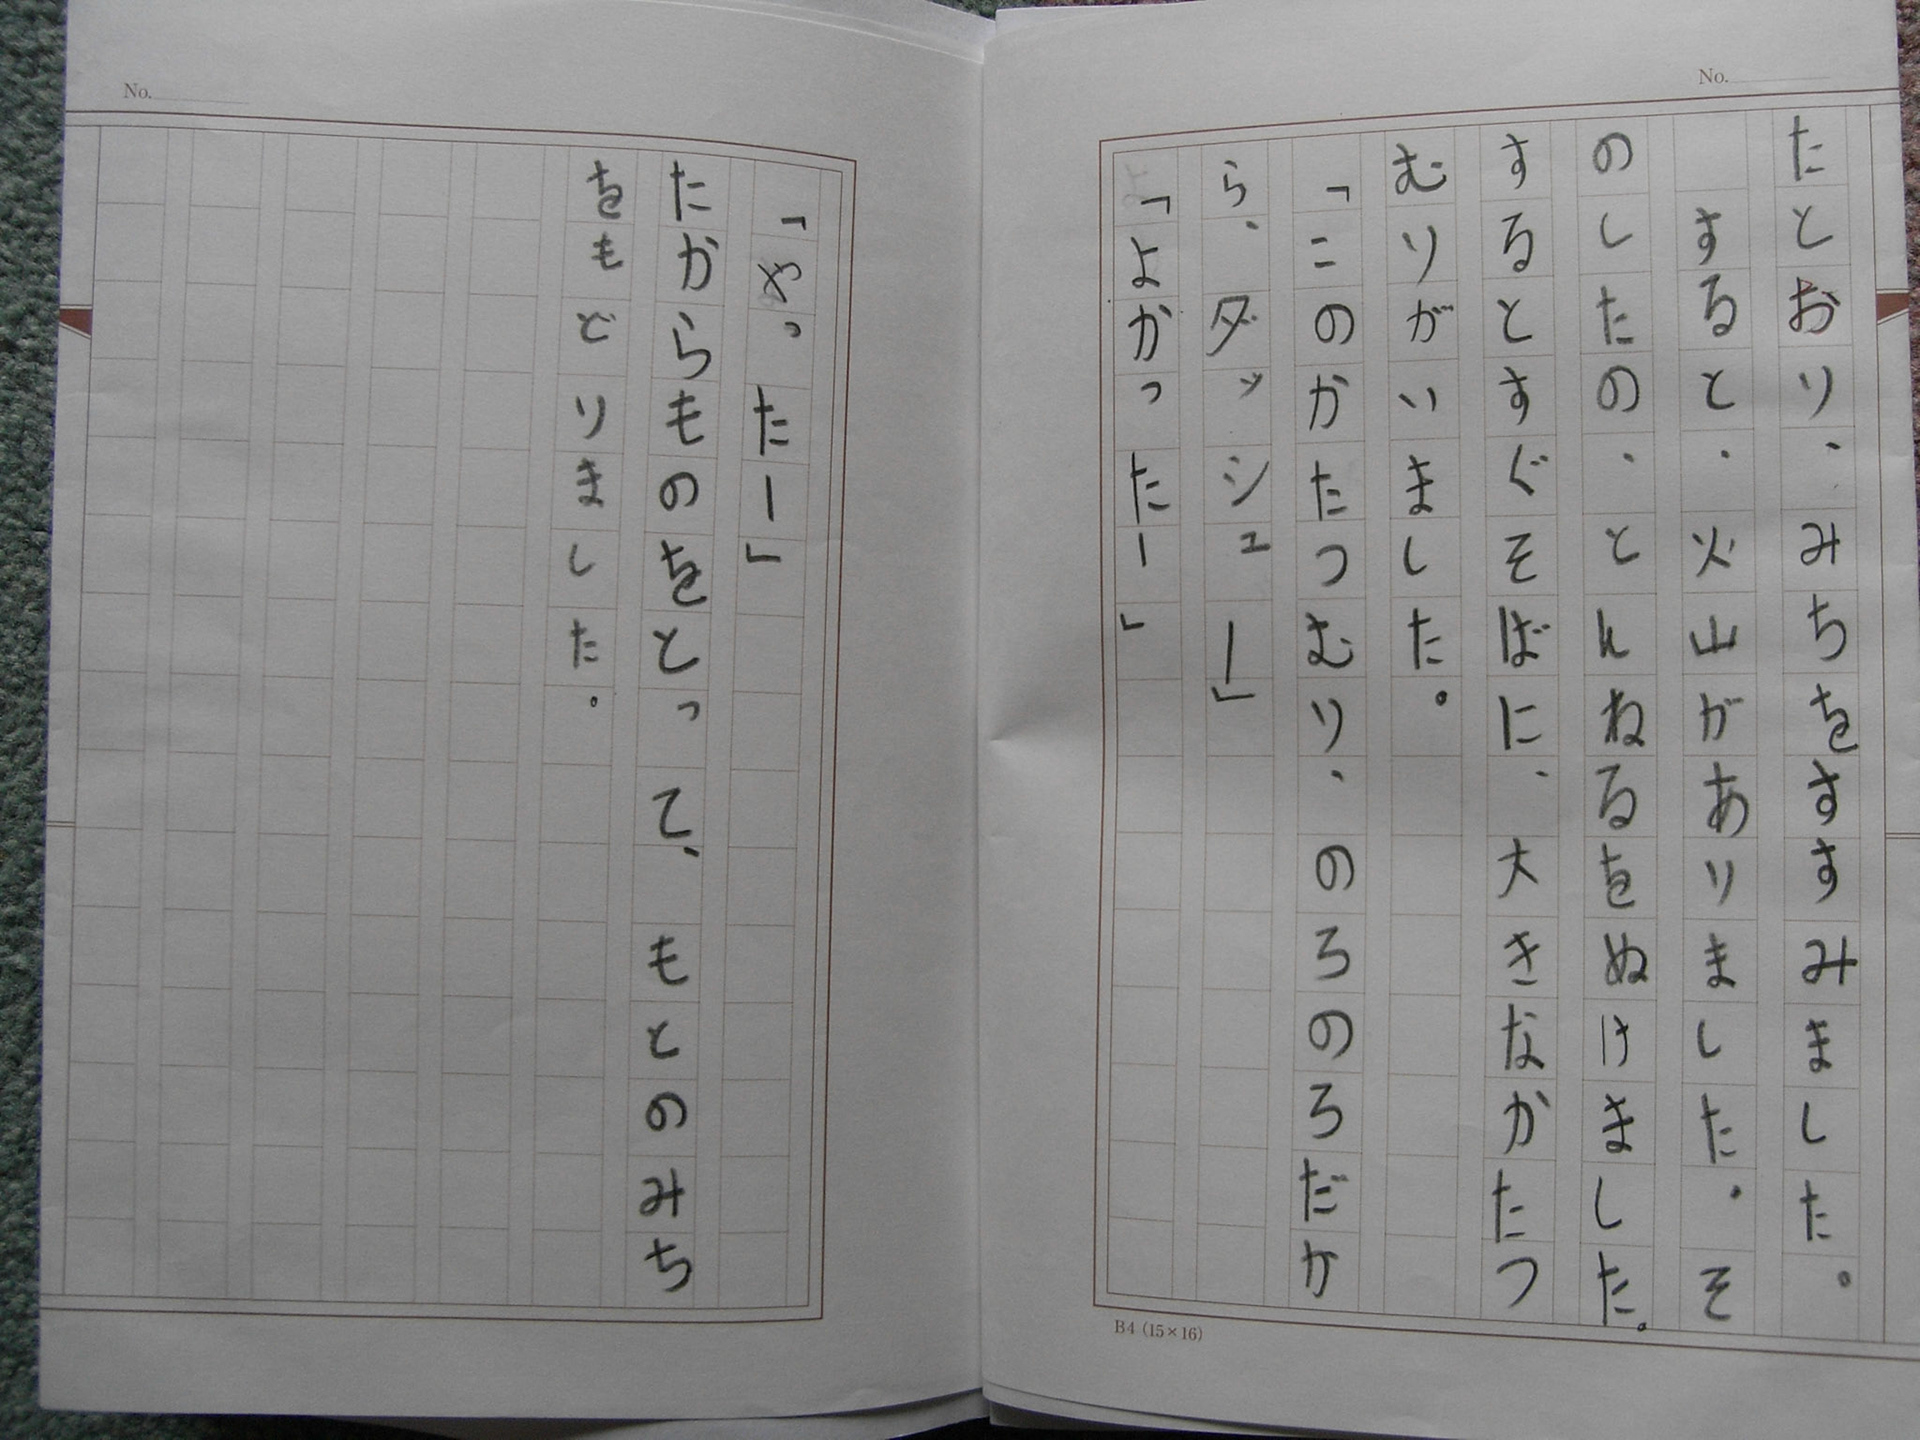 No.
たとおり、みちをすすみました。
すると、火山がありました。そ
のしたの、とんねるをぬけました。
するとすぐそばに、大きなかたつ
むりがいました。
「このかたつむり、のろのろだか
ら、ダッシュー」
「よかったー」
B4 (15×16)
No.
「やったー」
たからものをとって、もとのみち
をもどりました。